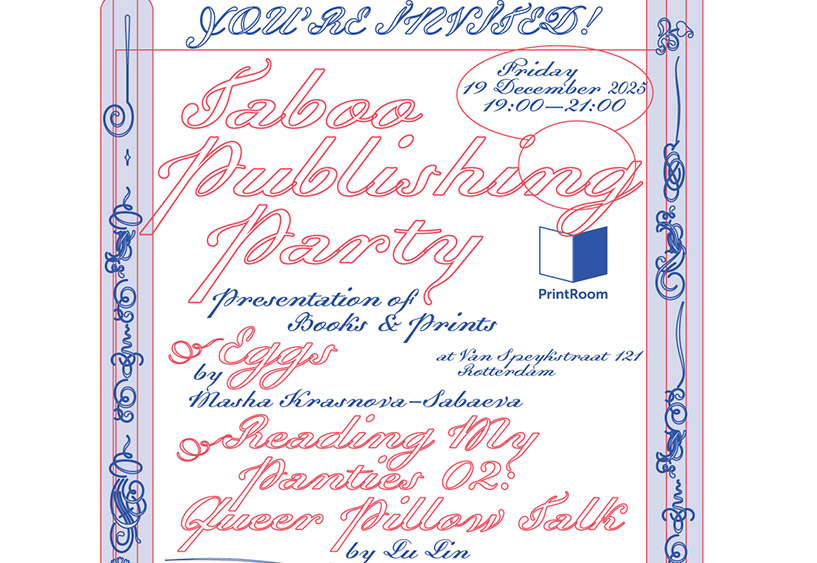 YOU'RE INVITED!
Friday
19 December 2025
19:00—21:00
Taboo
Publishing
Party
PrintRoom
Presentation of
Books & Prints
Eggs
by
Masha Krasnova-Sabaeva
at Van Speykstraat 121
Rotterdam
Reading My
Panties 02:
Queer Pillow Talk
by Lu Lin